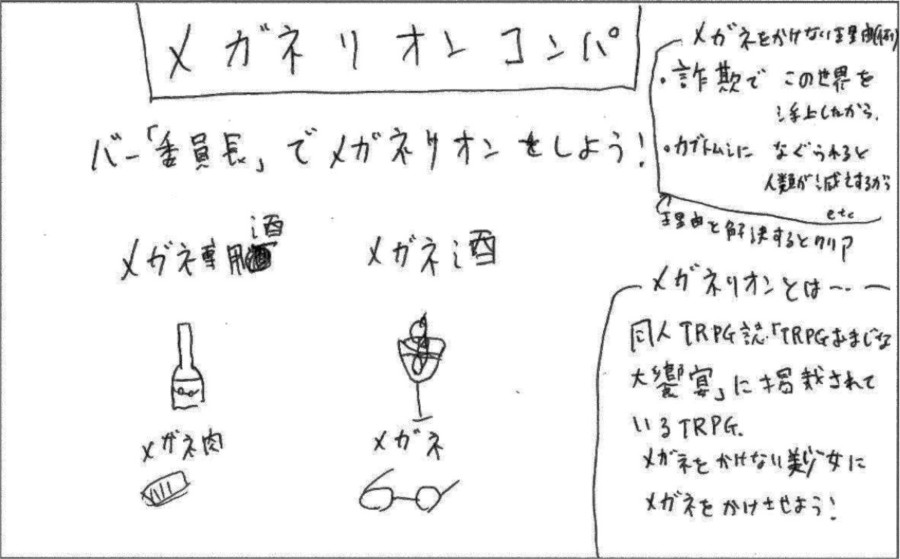 メガネリオンコンパ
バー「委員長」でメガネリオンをしよう!
メガネ専用酒
メガネ酒
メガネ肉
メガネ
メガネをかけない理由(例)
・詐欺で この世界を
浮上したから。
・カブトムシに なぐられると
人類が滅亡するから
etc
理由を解決するとクリア
メガネリオンとは…
同人TRPG誌「TRPGおまじな
大饗宴」に掲載されて
いるTRPG.
メガネをかけない美少女に
メガネをかけさせよう!